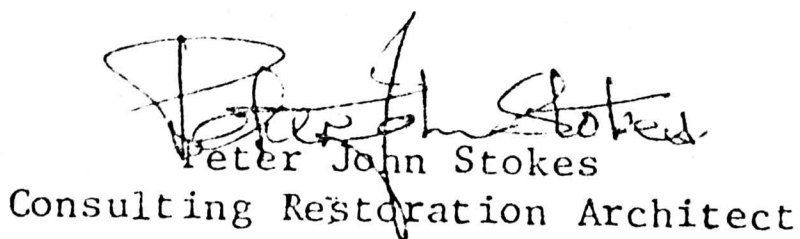 Peter John Stokes
Peter John Stokes
Consulting Restoration Architect